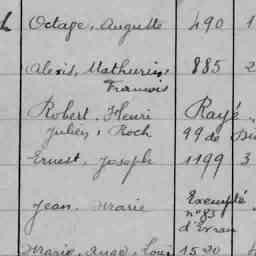 Octave, Auguste 490 1
Alexis, Mathurin, 885 2
Francois
Robert, Henri Rayé
Julien, Roch 99 de
Ernest, Joseph 1199 3
Jean, Marie Exempté
n° 83
d'Evran
Marie, Ange, Louis 1520